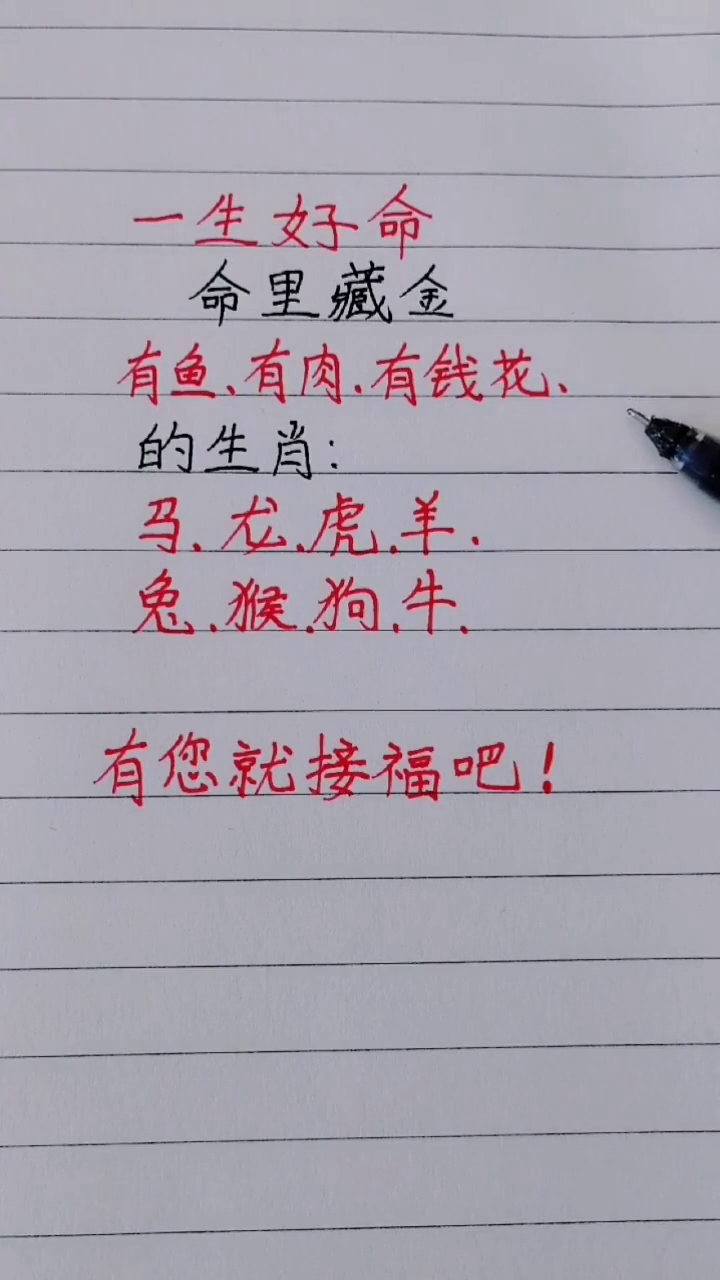 一生好命
命里藏金
有鱼、有肉、有钱花、
的生肖:
马.龙.虎.羊.
兔.猴.狗.牛.
有您就接福吧!